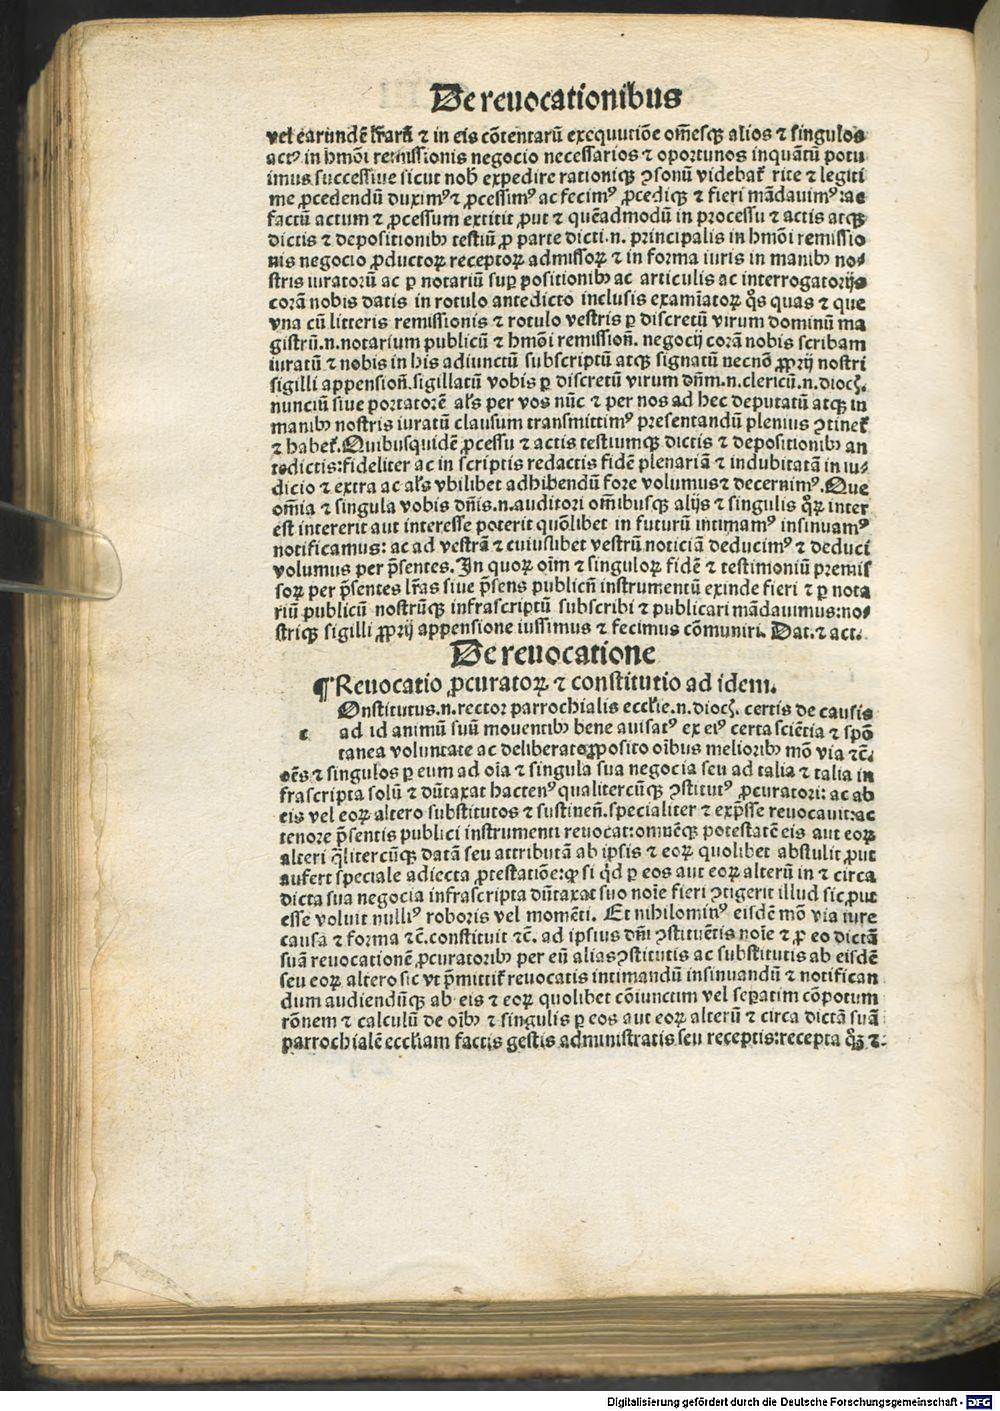 De reuocationibus
vel earundē lr̄arū ⁊ in eis cōtentarū exequutiōe om̄esqꝫ alios ⁊ singulos
actꝰ in hmōi remissionis negocio necessarios ⁊ oportunos inquātū potu
imus successiue sicut nob̄ expedire rationiqꝫ ꝯsonū videbat̄ rite ⁊ legiti
me ꝓcedendū duximꝰ ⁊ ꝓcessimꝰ ac fecimꝰ ꝓcediqꝫ ⁊ fieri mādauimꝰ: ac
factū actum ⁊ ꝓcessum extitit ꝓut ⁊ quēadmodū in processu ⁊ actis atqꝫ
dictis ⁊ depositionibꝫ testiū ꝓ parte dicti .n. principalis in hmōi remissio
nis negocio ꝓductoꝝ receptoꝝ admissoꝝ ⁊ in forma iuris in manibꝫ no⸗
stris iuratorū ac ꝑ notariū suꝑ positionibꝫ ac articulis ac interrogatorijs
corā nobis datis in rotulo antedicto inclusis examīatoꝝ q̄s quas ⁊ que
vna cū litteris remissionis ⁊ rotulo vestris ꝑ discretū virum dominū ma
gistrū .n. notarium publicū ⁊ hmōi remission̄. negocij corā nobis scribam
iuratū ⁊ nobis in his adiunctū subscriptū atqꝫ signatū necnō ꝓprij nostri
sigilli appension̄. sigillatū vobis ꝑ discretū virum dn̄m .n. clericū .n. dioc̄.
nunciū siue portatorē als̄ per vos nūc ⁊ per nos ad hec deputatū atqꝫ in
manibꝫ nostris iuratū clausum transmittimꝰ presentandū plenius ꝯtinet̄
⁊ habet̄. Quibusquidē ꝓcessu ⁊ actis testiumqꝫ dictis ⁊ depositionibꝫ an
tedictis: fideliter ac in scriptis redactis fidē plenariā ⁊ indubitatā in iu⸗
dicio ⁊ extra ac als̄ vbilibet adhibendū fore volumus ⁊ decernimꝰ. Que
om̄ia ⁊ singula vobis dn̄is .n. auditori om̄ibusqꝫ alijs ⁊ singulis q̄ꝝ inter
est intererit aut interesse poterit quōlibet in futurū intimamꝰ insinuamꝰ
notificamus: ac ad vestrā ⁊ cuiuslibet vestrū noticiā deducimꝰ ⁊ deduci
volumus per p̄sentes. In quoꝝ oīm ⁊ singuloꝝ fidē ⁊ testimoniū premis
soꝝ per p̄sentes lr̄as siue p̄sens publicū instrumentū exinde fieri ⁊ ꝑ nota
riū publicū nostrūqꝫ infrascriptū subscribi ⁊ publicari mādauimus: no⸗
striqꝫ sigilli ꝓprij appensione iussimus ⁊ fecimus cōmuniri. Dat. ⁊ act.
De reuocatione
¶ Reuocatio ꝓcuratoꝝ ⁊ constitutio ad idem.
c Onstitutus .n. rector parrochialis eccl̄ie .n. dioc̄. certis de causis
ad id animū suū mouentibꝫ bene auisatꝰ ex eiꝰ certa sciētia ⁊ spō
tanea voluntate ac deliberato ꝓposito oībus melioribꝫ mō via ⁊c̄.
oēs ⁊ singulos ꝑ eum ad oīa ⁊ singula sua negocia seu ad talia ⁊ talia in
frascripta solū ⁊ dūtaxat hactenꝰ qualitercūqꝫ ꝯstitutꝰ ꝓcuratori: ac ab
eis vel eoꝝ altero substitutos ⁊ sustinen̄. specialiter ⁊ exp̄sse reuocauit: ac
tenore p̄sentis publici instrumenti reuocat: omnēqꝫ potestatē eis aut eoꝝ
alteri q̄litercūqꝫ datā seu attributā ab ipsis ⁊ eoꝝ quolibet abstulit ꝓut
aufert speciale adiecta ꝓtestatiōe: qꝙ si qd̄ ꝑ eos aut eoꝝ alterū in ⁊ circa
dicta sua negocia infrascripta dūtaxat suo noīe fieri ꝯtigerit illud sic ꝓut
esse voluit nulliꝰ roboris vel momēti. Et nihilominꝰ eisdē mō via iure
causa ⁊ forma ⁊c̄. constituit ⁊c̄. ad ipsius dn̄i ꝯstituētis noīe ⁊ ꝓ eo dictā
suā reuocationē ꝓcuratoribꝫ per eū alias ꝯstitutis ac substitutis ab eisdē
seu eoꝝ altero sic vt p̄mittit̄ reuocatis intimandū insinuandū ⁊ notifican
dum audiendūqꝫ ab eis ⁊ eoꝝ quolibet cōiunctim vel seꝑatim cōpotum
rōnem ⁊ calculū de oībꝫ ⁊ singulis ꝑ eos aut eoꝝ alterū ⁊ circa dictā suā
parrochialē eccl̄iam factis gestis administratis seu receptis: recepta q̄ꝫ ⁊
Digitalisierung gefördert durch die Deutsche Forschungsgemeinschaft - DFG